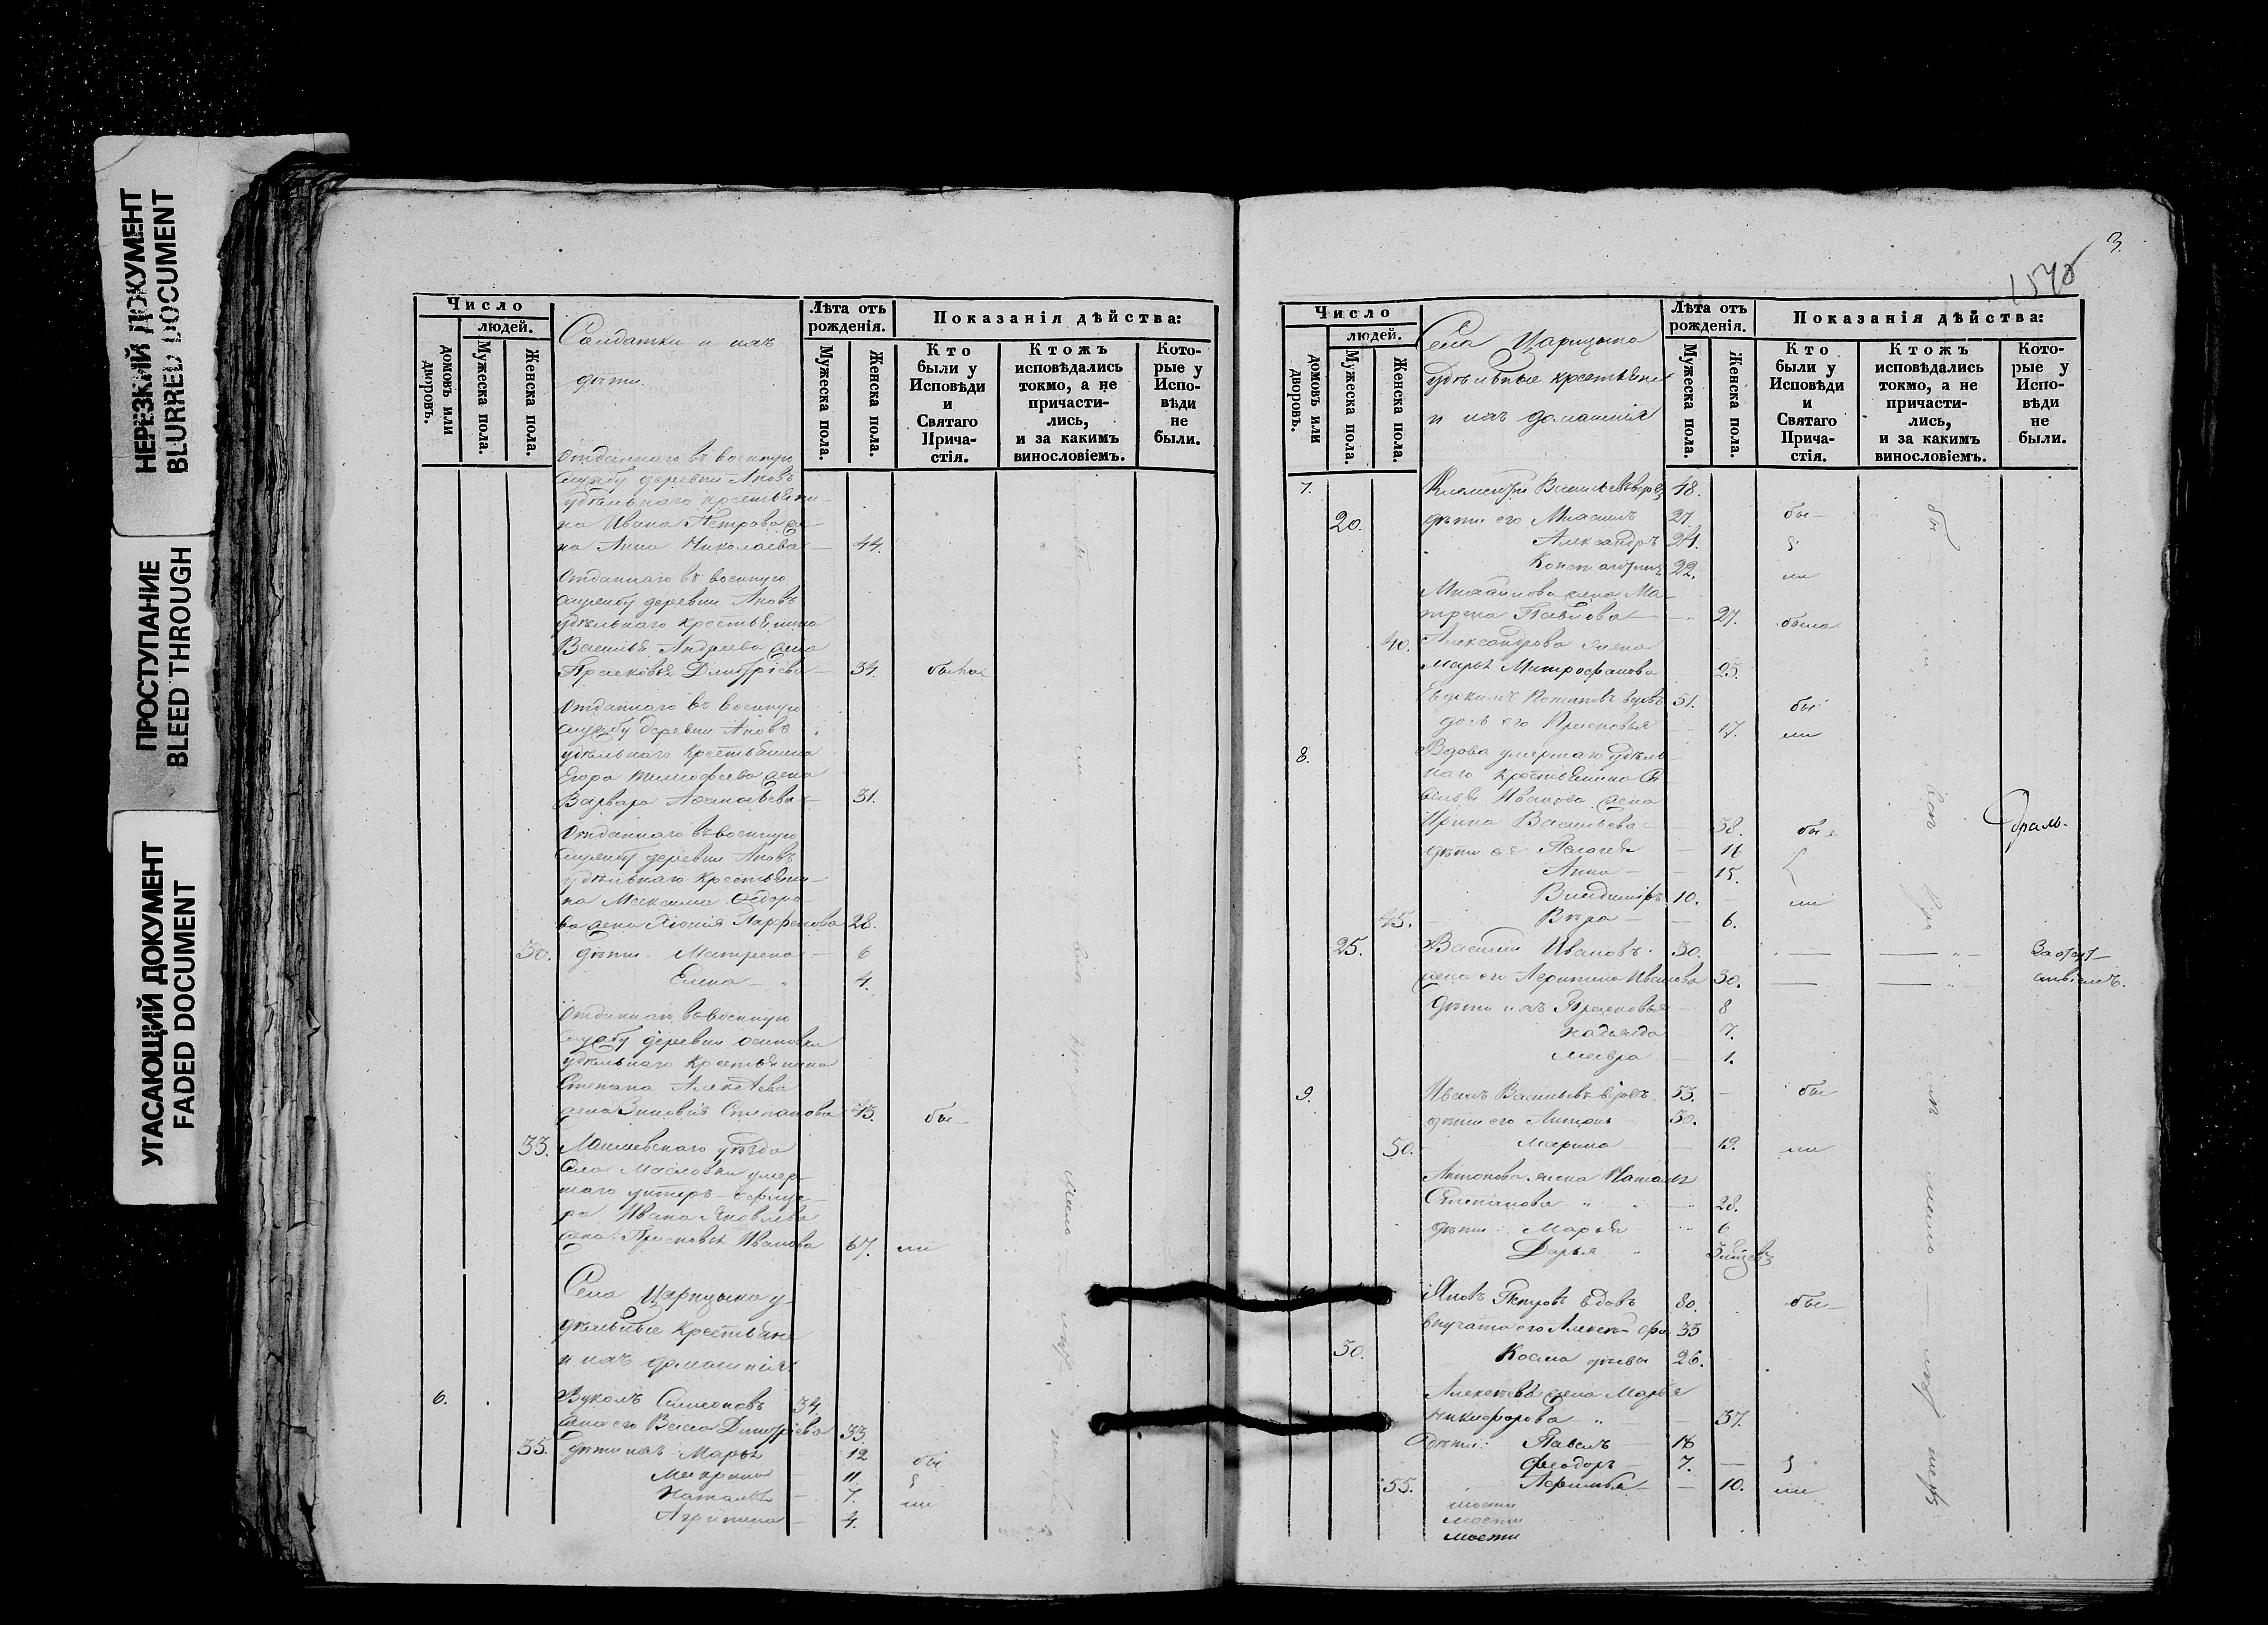 НЕРЕЗКИЙ ДОКУМЕНТ
BLURRED DOCUMENT
ПРОСТУПАНИЕ
BLEED THROUGH
УГАСАЮЩИЙ ДОКУМЕНТ
FADED DOCUMENT
Число
людей.
домовъ или дворовъ.
Мужеска пола.
Женска пола.
Солдатки и ихъ
дѣти.
Лѣта отъ рожденія.
Мужеска пола.
Женска пола.
Показанія дѣйства:
Кто были у Исповѣди и Святаго Прича-стія.
Ктожъ исповѣдались токмо, а не причасти-лись, и за какимъ винословіемъ.
Кото-рые у Испо-вѣди не были.
Отданнаго въ военную
службу деревни Аковъ
удѣльнаго крестьяни-
на Ивана Петрова же-
на Анна Николаева 44.
Отданнаго въ военную
службу деревни Аковъ
удѣльнаго крестьянина
Василья Андреева жена
Прасковья Димитріева 34. была
Отданнаго въ военную
службу деревни Аковъ
удѣльнаго крестьянина
Егора Тимофеева жена
Варвара 31.
Отданнаго въ военную
службу деревни Аковъ
удѣльнаго крестьяни-
на Максима Ѳедоро-
ва жена Хіонія Парфенова 28.
30. дѣти: Матрена 6
Елена 4.
Отданнаго въ военную
службу деревни осиновки
удѣльнаго крестьянина
Степана Алексѣева
жена Зиновія Степанова 43. бы-
33. Лаишевскаго уѣзда
села Масловки умер
шаго унтеръ-офице-
ра Ивана Яковлева
жена Прасковья Иванова 67. ли
Села Царицына у-
дѣльные крестьяне
и ихъ домашнія
6. Вуколъ Симеоновъ 34.
жена его Васса Димитріева 33.
35. дѣти ихъ Марья 12 бы
Макрина 11.
Наталья 7. ли
Агрипина 4.
3.
Число
людей.
домовъ или дворовъ.
Мужеска пола.
Женска пола.
Села Царицына
удѣльные крестьяне
и ихъ домашнія
Лѣта отъ рожденія.
Мужеска пола.
Женска пола.
Показанія дѣйства:
Кто были у Исповѣди и Святаго Прича-стія.
Ктожъ исповѣдались токмо, а не причасти-лись, и за какимъ винословіемъ.
Кото-рые у Испо-вѣди не были.
7. Климентій Васильевъ вдовъ 48.
20. дѣти его Михаилъ 27. бы-
Александръ 24.
Константинъ 22. ли
Михайлова жена Ма-
трена Павлова 27. была
40. Александрова жена
Марья Митрофанова 25.
Евдокимъ вдовъ 51. бы
дочь его Прасковья 17. ли
8. Вдова умершаго удѣль
наго крестьянина Са
Иванова жена
Ирина Васильева 38. бы
дѣти ея Пелагея 16
Анна 15.
Владиміръ 10. ли
45. Вѣра 6.
25. Василій Ивановъ 30. За отсут-
жена его Иванова 30. ствіемъ.
дѣти ихъ Прасковья 8
Надежда 7.
Мавра 1.
9. Иванъ Васильевъ вдовъ 53. бы
дѣти его Антонъ 30.
50. Марина 19. ли
Антонова жена Наталья
Степанова 28.
дѣти: Марья 6
Дарья
Яковъ Петровъ вдовъ 80. бы-
внучата его Алексѣй 35
30. Косма 26.
Алексѣева жена Марья
Никифорова 37.
дѣти: Павелъ 16
Феодоръ 7.
55. 10. ли
мости
мости
мости